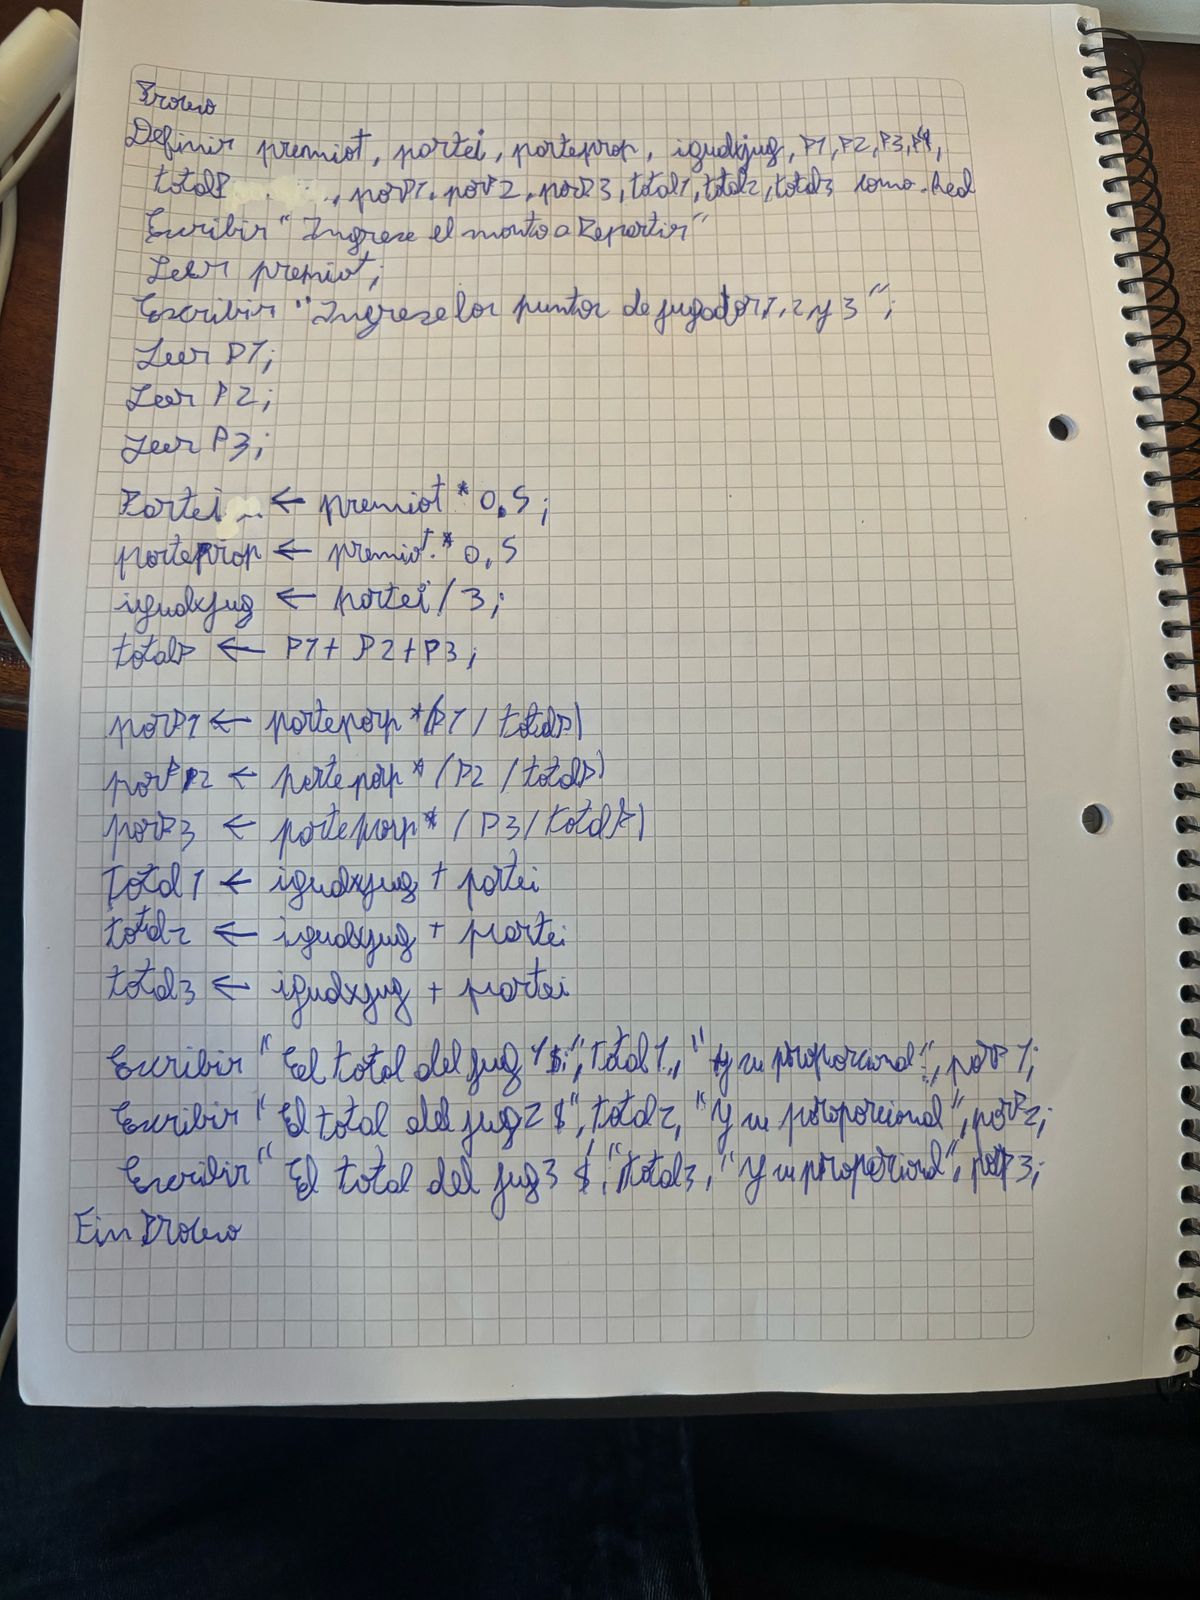 Proceso
Definir premiot, partei, parteprop, igualxjug, P1, P2, P3,
totalP , porP1, porP2, porP3, total1, total2, total3 como Real
Escribir "Ingrese el monto a Repartir"
Leer premiot;
Escribir "Ingrese los puntos de jugador 1, 2 y 3";
Leer P1;
Leer P2;
Leer P3;
Partei ← premiot * 0,5;
parteprop ← premiot * 0,5
igualxjug ← partei / 3;
totalP ← P1 + P2 + P3;
porP1 ← parteporp * (P1 / totalP)
porP2 ← parteporp * (P2 / totalP)
porP3 ← parteporp * (P3 / totalP)
Total1 ← igualxjug + partei
total2 ← igualxjug + partei
total3 ← igualxjug + partei
Escribir "El total del jug 1 $:", total1, "y su proporcional:", porP1;
Escribir "El total del jug 2 $", total2, "Y su proporcional", porP2;
Escribir "El total del jug 3 $:", total3, "Y su proporcional", porP3;
Fin Proceso